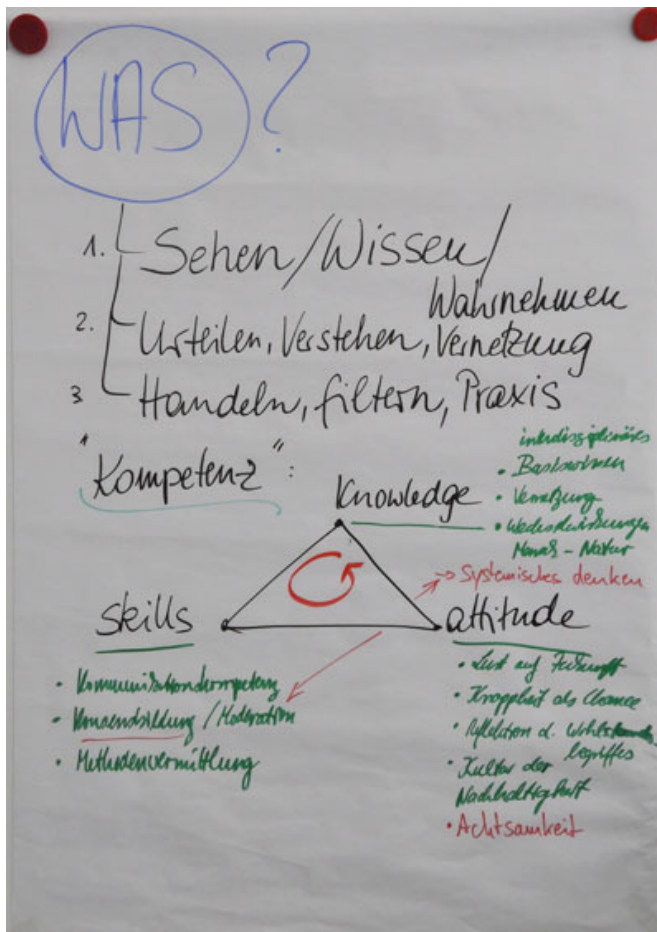 WAS ?
1. Sehen/Wissen/
Wahrnehmen
2. Urteilen, Verstehen, Vernetzung
3 Handeln, filtern, Praxis
"Kompetenz":
Knowledge
interdisziplinäres
• Basiswissen
• Vernetzung
• Wechselwirkungen
Mensch - Natur
→ Systemisches denken
skills
attitude
• Kommunikationskompetenz
• Konsensbildung / Moderation
• Methodenvermittlung
• Lust auf Zukunft
• Knappheit als Chance
• Reflektion d. Wohlstands-
begriffes
• Kultur der
Nachhaltigkeit
• Achtsamkeit